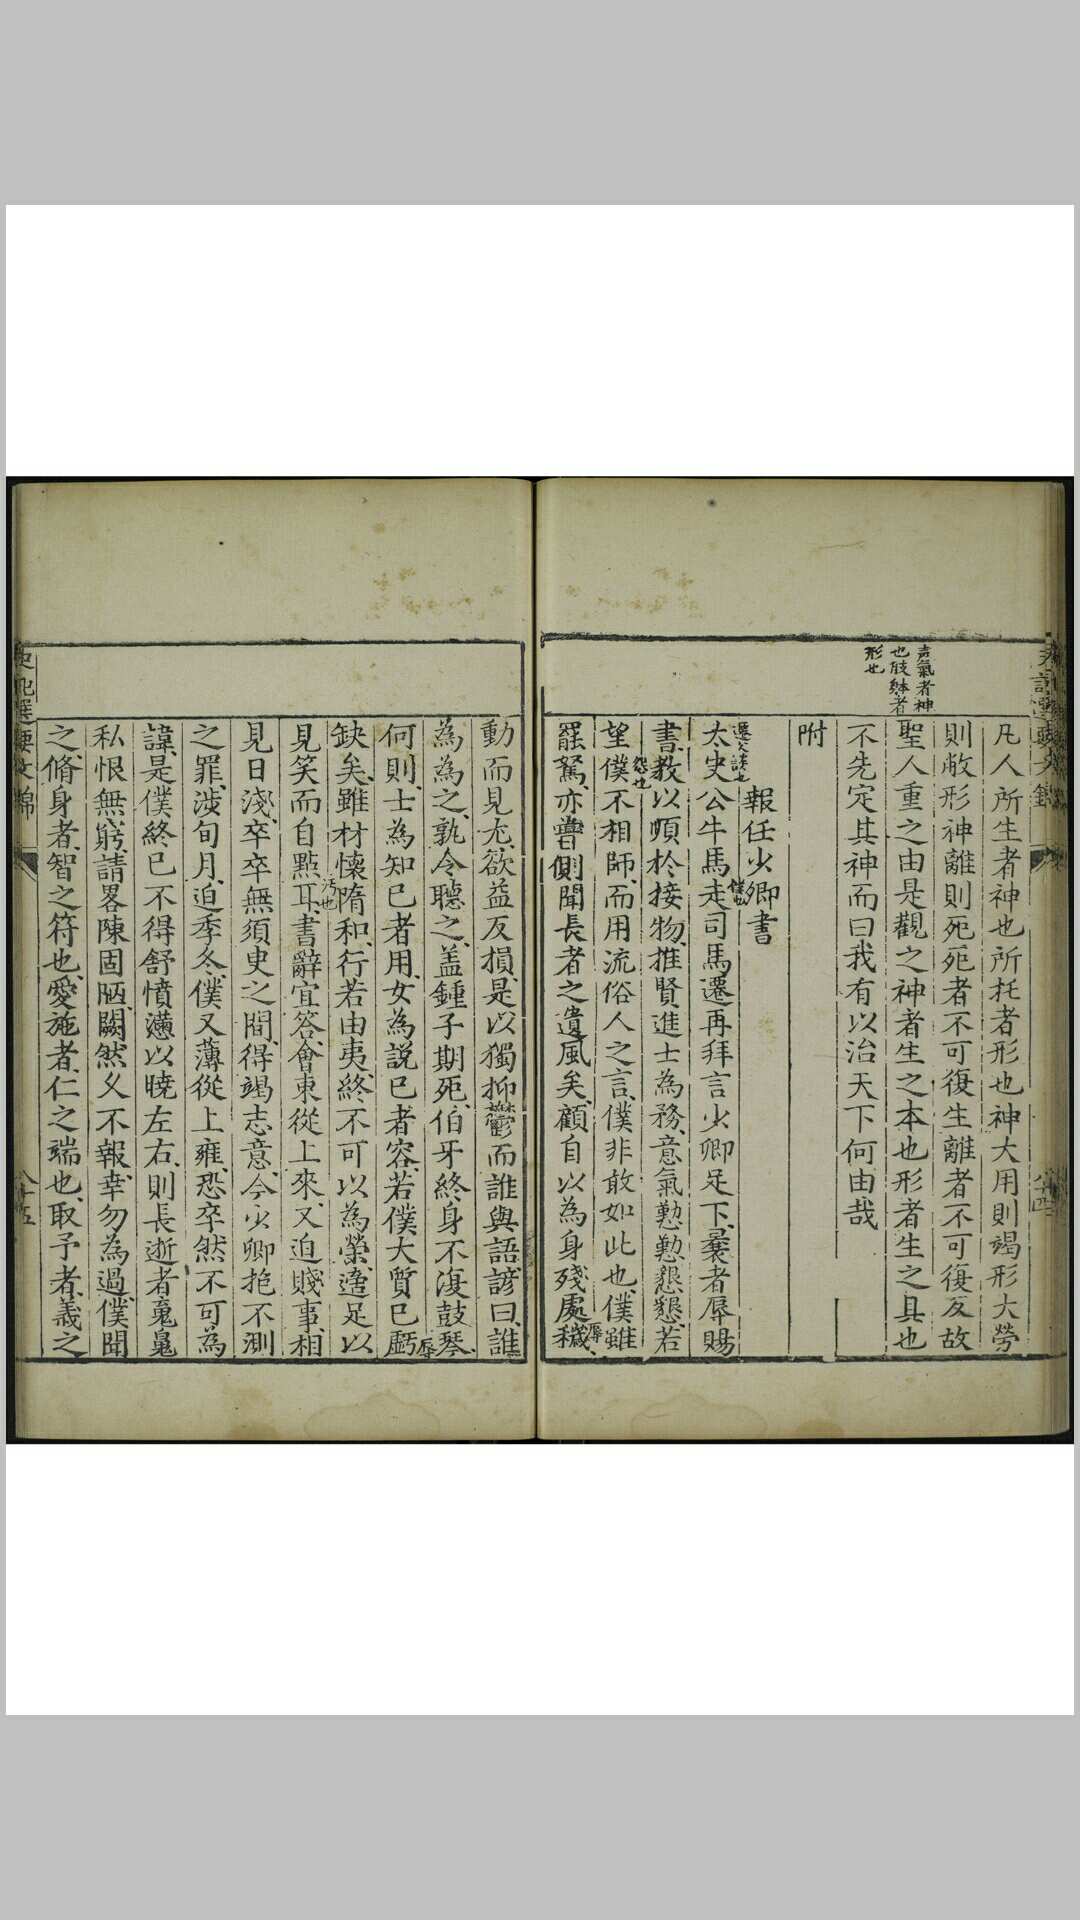 凡人所生者神也所托者形也神大用則竭形大勞
則敝形神離則死死者不可復生離者不可復反故
聖人重之由是觀之神者生之本也形者生之具也
不先定其神而曰我有以治天下何由哉
言氣者神
也肢躰者
形也
附
報任少卿書
太史公牛馬走司馬遷再拜言少卿足下曩者辱賜
遷父談也
僕也
書教以順於接物推賢進士為務意氣懃懃懇懇若
望僕不相師而用流俗人之言僕非敢如此也僕雖
怨也
罷駑亦嘗側聞長者之遺風矣顧自以為身殘處穢
辱
動而見尤欲益反損是以獨抑鬱而誰與語諺曰誰
為為之孰令聽之盖鍾子期死伯牙終身不復鼓琴
何則士為知己者用女為說己者容若僕大質已虧
辱
缺矣雖材懷隋和行若由夷終不可以為榮適足以
見笑而自點耳書辭宜答會東從上來又迫賤事相
汚也
見日淺卒卒無須臾之間得竭志意今少卿抱不測
之罪涉旬月迫季冬僕又薄從上雍恐卒然不可為
諱是僕終已不得舒憤懣以曉左右則長逝者魂魄
私恨無窮請畧陳固陋闕然久不報幸勿為過僕聞
之脩身者智之符也愛施者仁之端也取予者義之